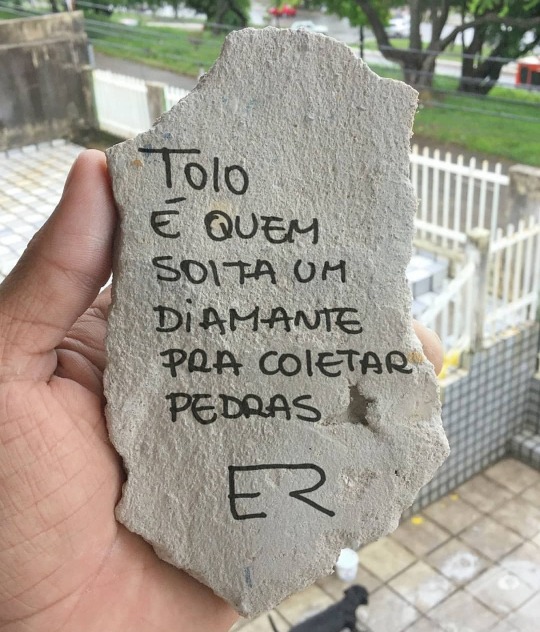 TOlO
É QUEM
SOlTA UM
DiAMANTE
PRA COlETAR
PEDRAS
ER